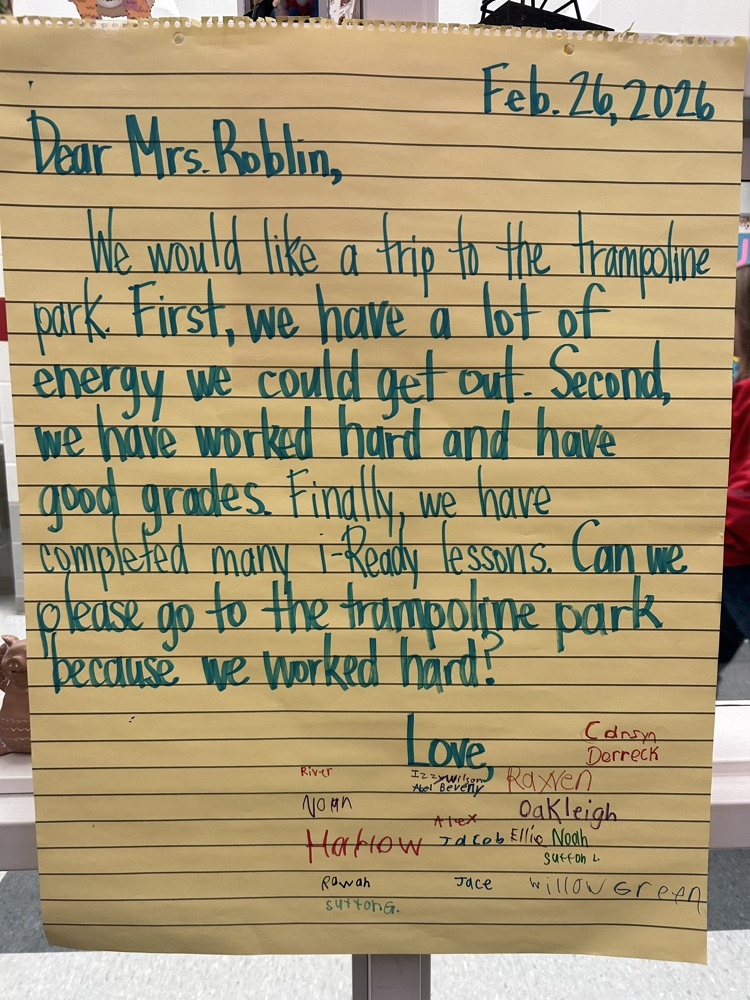 Feb. 26, 2026
Dear Mrs. Roblin,
We would like a trip to the trampoline
park. First, we have a lot of
energy we could get out. Second,
we have worked hard and have
good grades. Finally, we have
completed many i-Ready lessons. Can we
please go to the trampoline park
because we worked hard?
Love,
Derreck
River
Izzy Wilson
Abel Beverly
Raven
Noah
Oakleigh
Alex
Harlow
Jacob
Ellie
Noah
Sutton L.
Rowan
Jace
Willow Green
Sutton G.